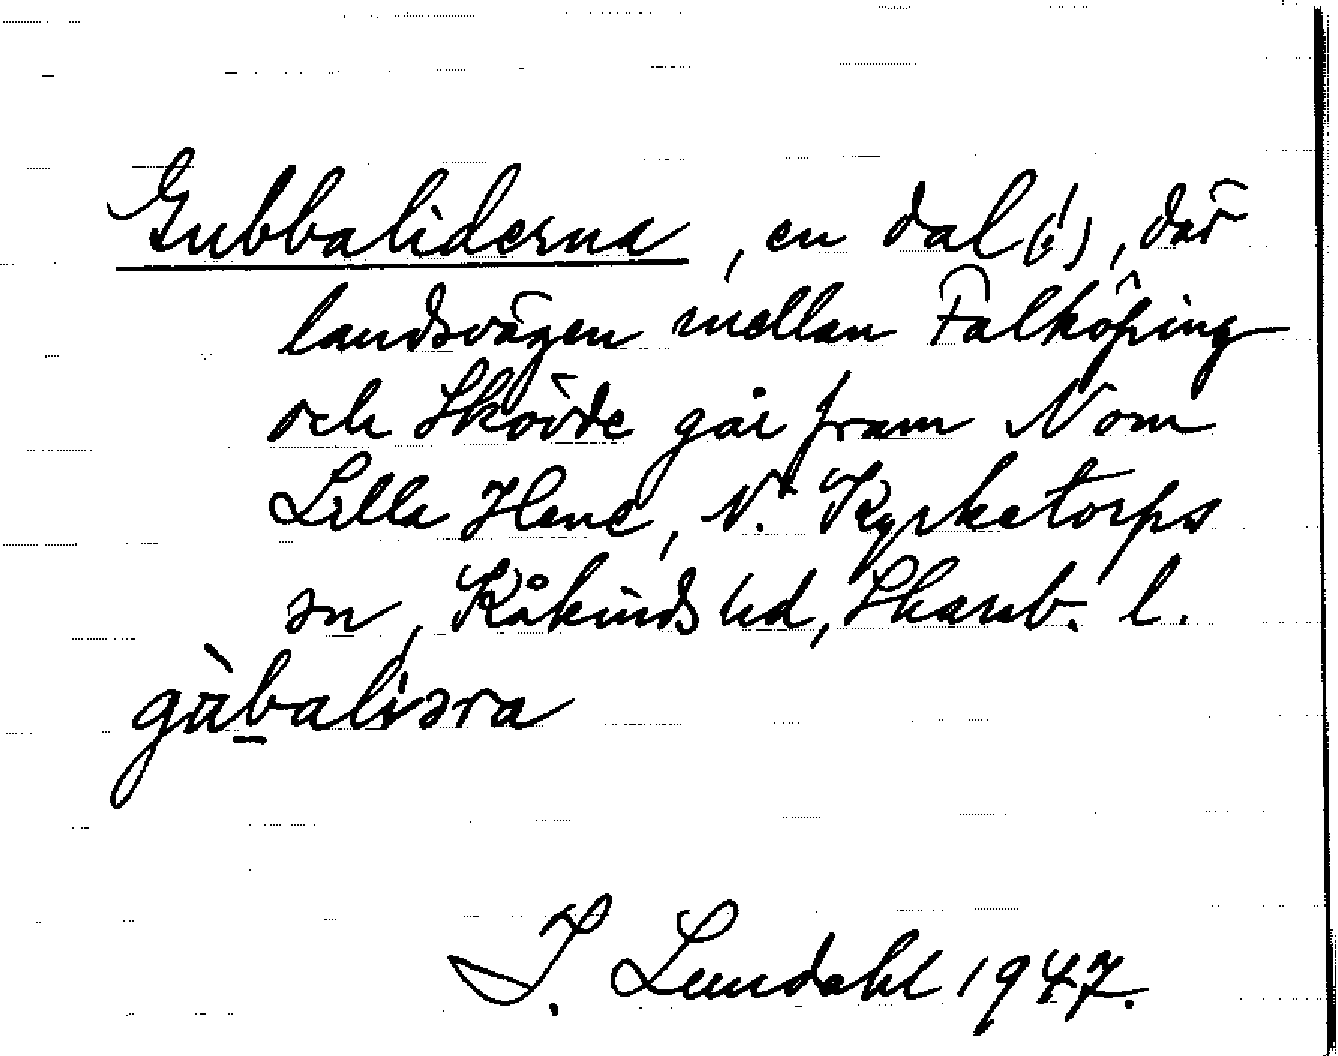 Gubbaliderna, en dal(!), där
landsvägen mellan Falköping
och Skövde går fram N om
Lilla Hene, N. Kyrketorps
sn, Kåkinds hd, Skarab. l.
gùbaliəra
I. Lundahl 1947.